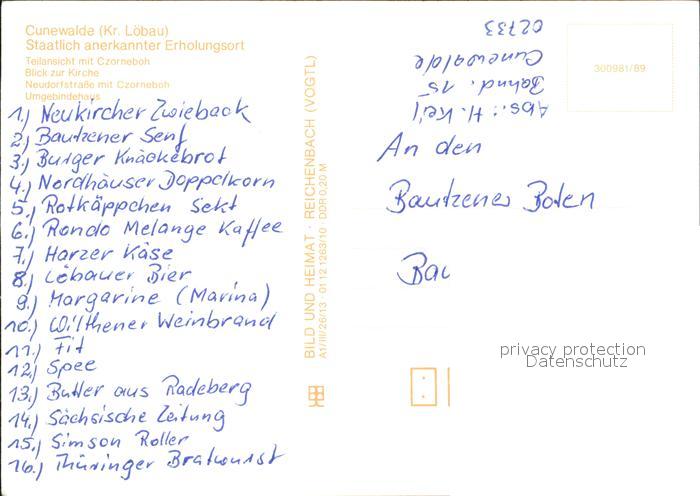 Cunewalde (Kr. Löbau)
Staatlich anerkannter Erholungsort
Teilansicht mit Czorneboh
Blick zur Kirche
Neudorfstraße mit Czorneboh
Umgebindehaus
1.) Neukircher Zwieback
2.) Bautzener Senf
3.) Burger Knäckebrot
4.) Nordhäuser Doppelkorn
5.) Rotkäppchen Sekt
6.) Rondo Melange Kaffee
7.) Harzer Käse
8.) Löbauer Bier
9.) Margarine (Marina)
10.) Wilthener Weinbrand
11.) Fit
12.) Spee
13.) Butter aus Radeberg
14.) Sächsische Zeitung
15.) Simson Roller
16.) Thüringer Bratwurst
BILD UND HEIMAT · REICHENBACH (VOGTL)
A1/III/26/13 01 12 1263/10 DDR 0,20 M
Abs.: H. Keil
Bahnd. 15
Cunewalde
02733
300981/89
An den
Bautzener Boten
Bau
privacy protection
Datenschutz